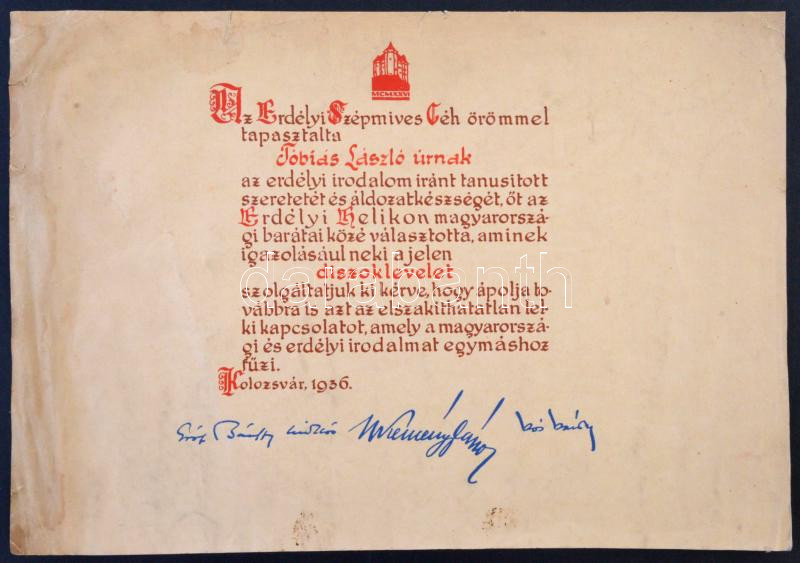 MCMXXVI
Az Erdélyi Szépmives Céh örömmel
tapasztalta
Tóbiás László úrnak
az erdélyi irodalom iránt tanusitott
szeretetét és áldozatkészségét, őt az
Erdélyi Helikon magyarorszá-
gi barátai közé választotta, aminek
igazolásául neki a jelen
diszoklevelet
szolgáltatjuk ki kérve, hogy ápolja to-
vábbra is azt az elszakithatatlan lel-
ki kapcsolatot, amely a magyarorszá-
gi és erdélyi irodalmat egymáshoz
fűzi.
Kolozsvár, 1936.
Gróf Bánffy Miklós Kemény János Kós Károly
darabanth